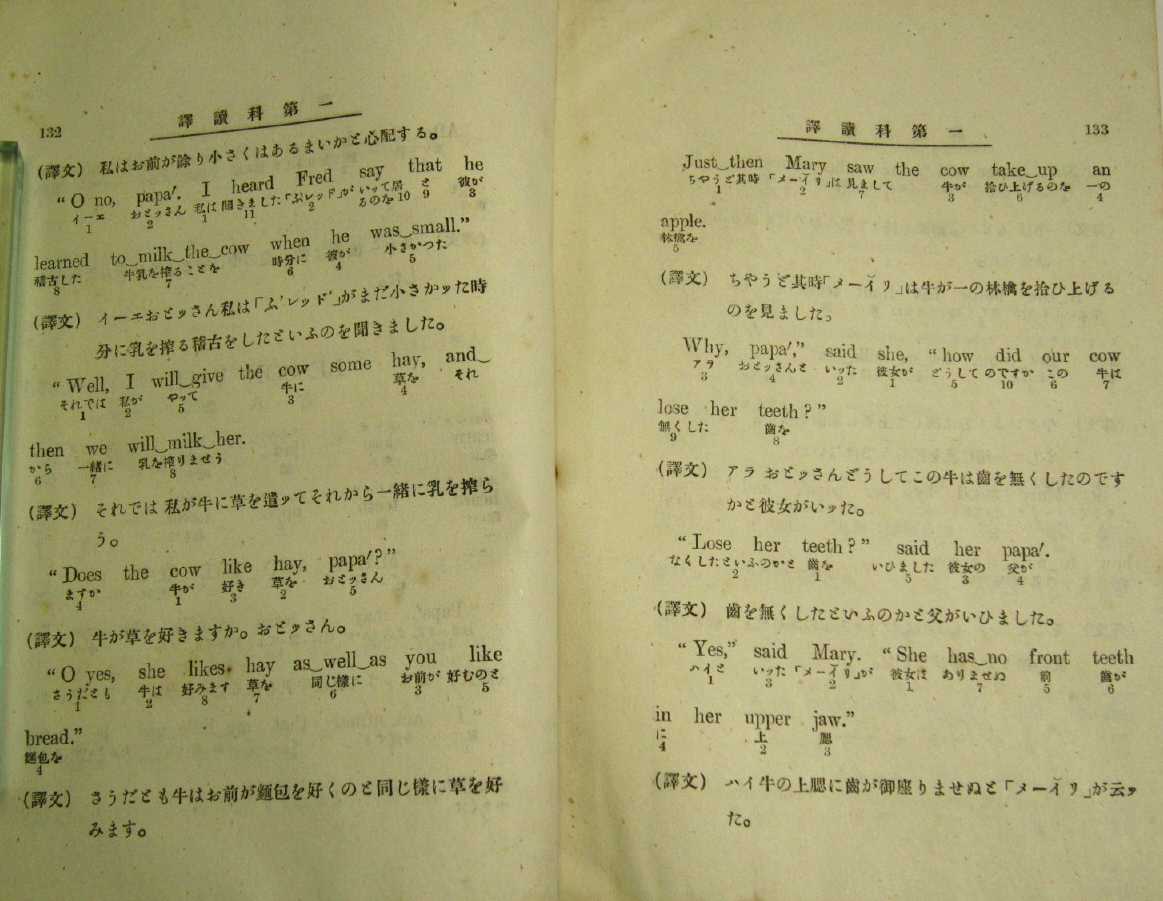 132
譯讀科第一
(譯文) 私はお前が餘り小さくはあるまいかと心配する。
“O no, papa′. I heard Fred say that he
イーエ おとッさん 私は 聞きました 「ふレッド」が いッて居るのを と 彼が
1 2 1 11 2 10 9 3
learned to‿milk‿the‿cow when he was‿small.”
稽古した 牛乳を搾ることを 時分に 彼が 小さかつた
8 7 6 4 5
(譯文) イーエおとッさん私は「ふレッド」がまだ小さかッた時
分に乳を搾る稽古をしたといふのを聞きました。
“Well, I will‿give the cow some hay, and‿
それでは 私が やッて 牛に 草を それ
1 2 5 3 4
then we will‿milk‿her.
から 一緒に 乳を搾りませう
6 7 8
(譯文) それでは私が牛に草を遣ッてそれから一緒に乳を搾ら
う。
“Does the cow like hay, papa′?”
ますか 牛が 好き 草を おとッさん
4 1 3 2 5
(譯文) 牛が草を好きますか。おとッさん。
“O yes, she likes hay as‿well‿as you like
さうだとも 牛は 好みます 草を 同じ樣に お前が 好むのと
1 2 8 7 6 3 5
bread.”
麵包を
4
(譯文) さうだとも牛はお前が麵包を好くのと同じ樣に草を好
みます。
譯讀科第一
133
Just‿then Mary saw the cow take‿up an
ちやうど其時 「メーイリ」は 見まして 牛が 拾ひ上げるのを 一の
1 2 7 3 6 4
apple.
林檎を
5
(譯文) ちやうど其時「メーイリ」は牛が一の林檎を拾ひ上げる
のを見ました。
Why, papa′,” said she, “how did our cow
アラ おとッさんと いッた 彼女が どうして のですか この 牛は
3 4 2 1 5 10 6 7
lose her teeth?”
無くした 齒を
9 8
(譯文) アラ おとッさんどうしてこの牛は齒を無くしたのです
かと彼女がいッた。
“Lose her teeth?” said her papa′.
なくしたといふのかと 齒を いひました 彼女の 父が
2 1 5 3 4
(譯文) 齒を無くしたといふのかと父がいひました。
“Yes,” said Mary. “She has‿no front teeth
ハイと いッた 「メーイリ」が 彼女は ありませぬ 前 齒が
1 3 2 1 7 5 6
in her upper jaw.”
に 上 腮
4 2 3
(譯文) ハイ牛の上腮に齒が御座りませぬと「メーイリ」が云ッ
た。